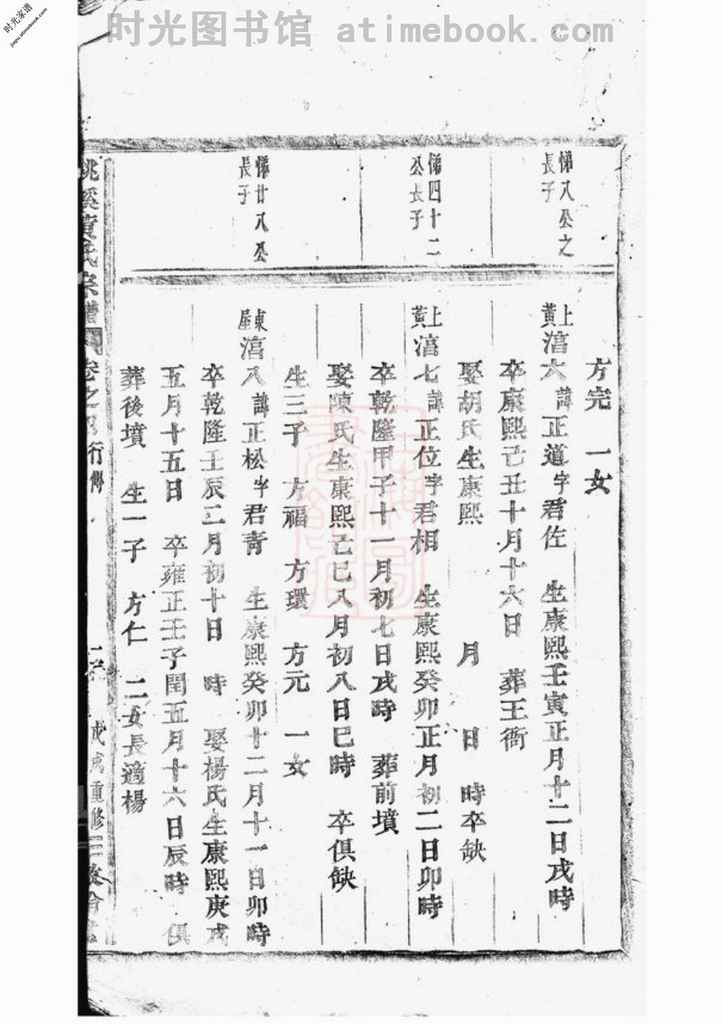 时光家谱
jiapu.atimebook.com
时光图书馆 atimebook.com
悌八公之
長子
悌四十二
公長子
悌廿八公
長子
方完 一女
上黃
濸六諱正道字君佐 生康熙壬寅正月十二日戌時
卒康熙己丑十月十六日 葬王衙
娶胡氏生康熙 月 日 時卒缺
上黃
濸七諱正位字君相 生康熙癸卯正月初二日卯時
卒乾隆甲子十一月初七日戌時 葬前墳
娶陳氏生康熙己巳八月初八日巳時 卒俱缺
生三子 方福 方環 方元 一女
東屋
濸八諱正松字君青 生康熙癸卯十二月十一日卯時
卒乾隆壬辰二月初十日 時 娶楊氏生康熙庚戌
五月十五日 卒雍正壬子閏五月十六日辰時 俱
葬後墳 生一子 方仁 二女長適楊
溪黃氏宗譜 卷之 行傳 重修